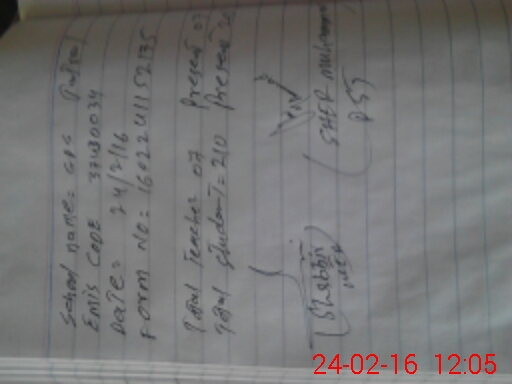 School name = GPS
EMIS CODE 37430034
Date = 24/2/16
Form No = 1602241152135
Total Teacher 07 Present 07
Total Student = 210 Present
(Shabbir
(SHER Muhammad
PST)
24-02-16 12:05